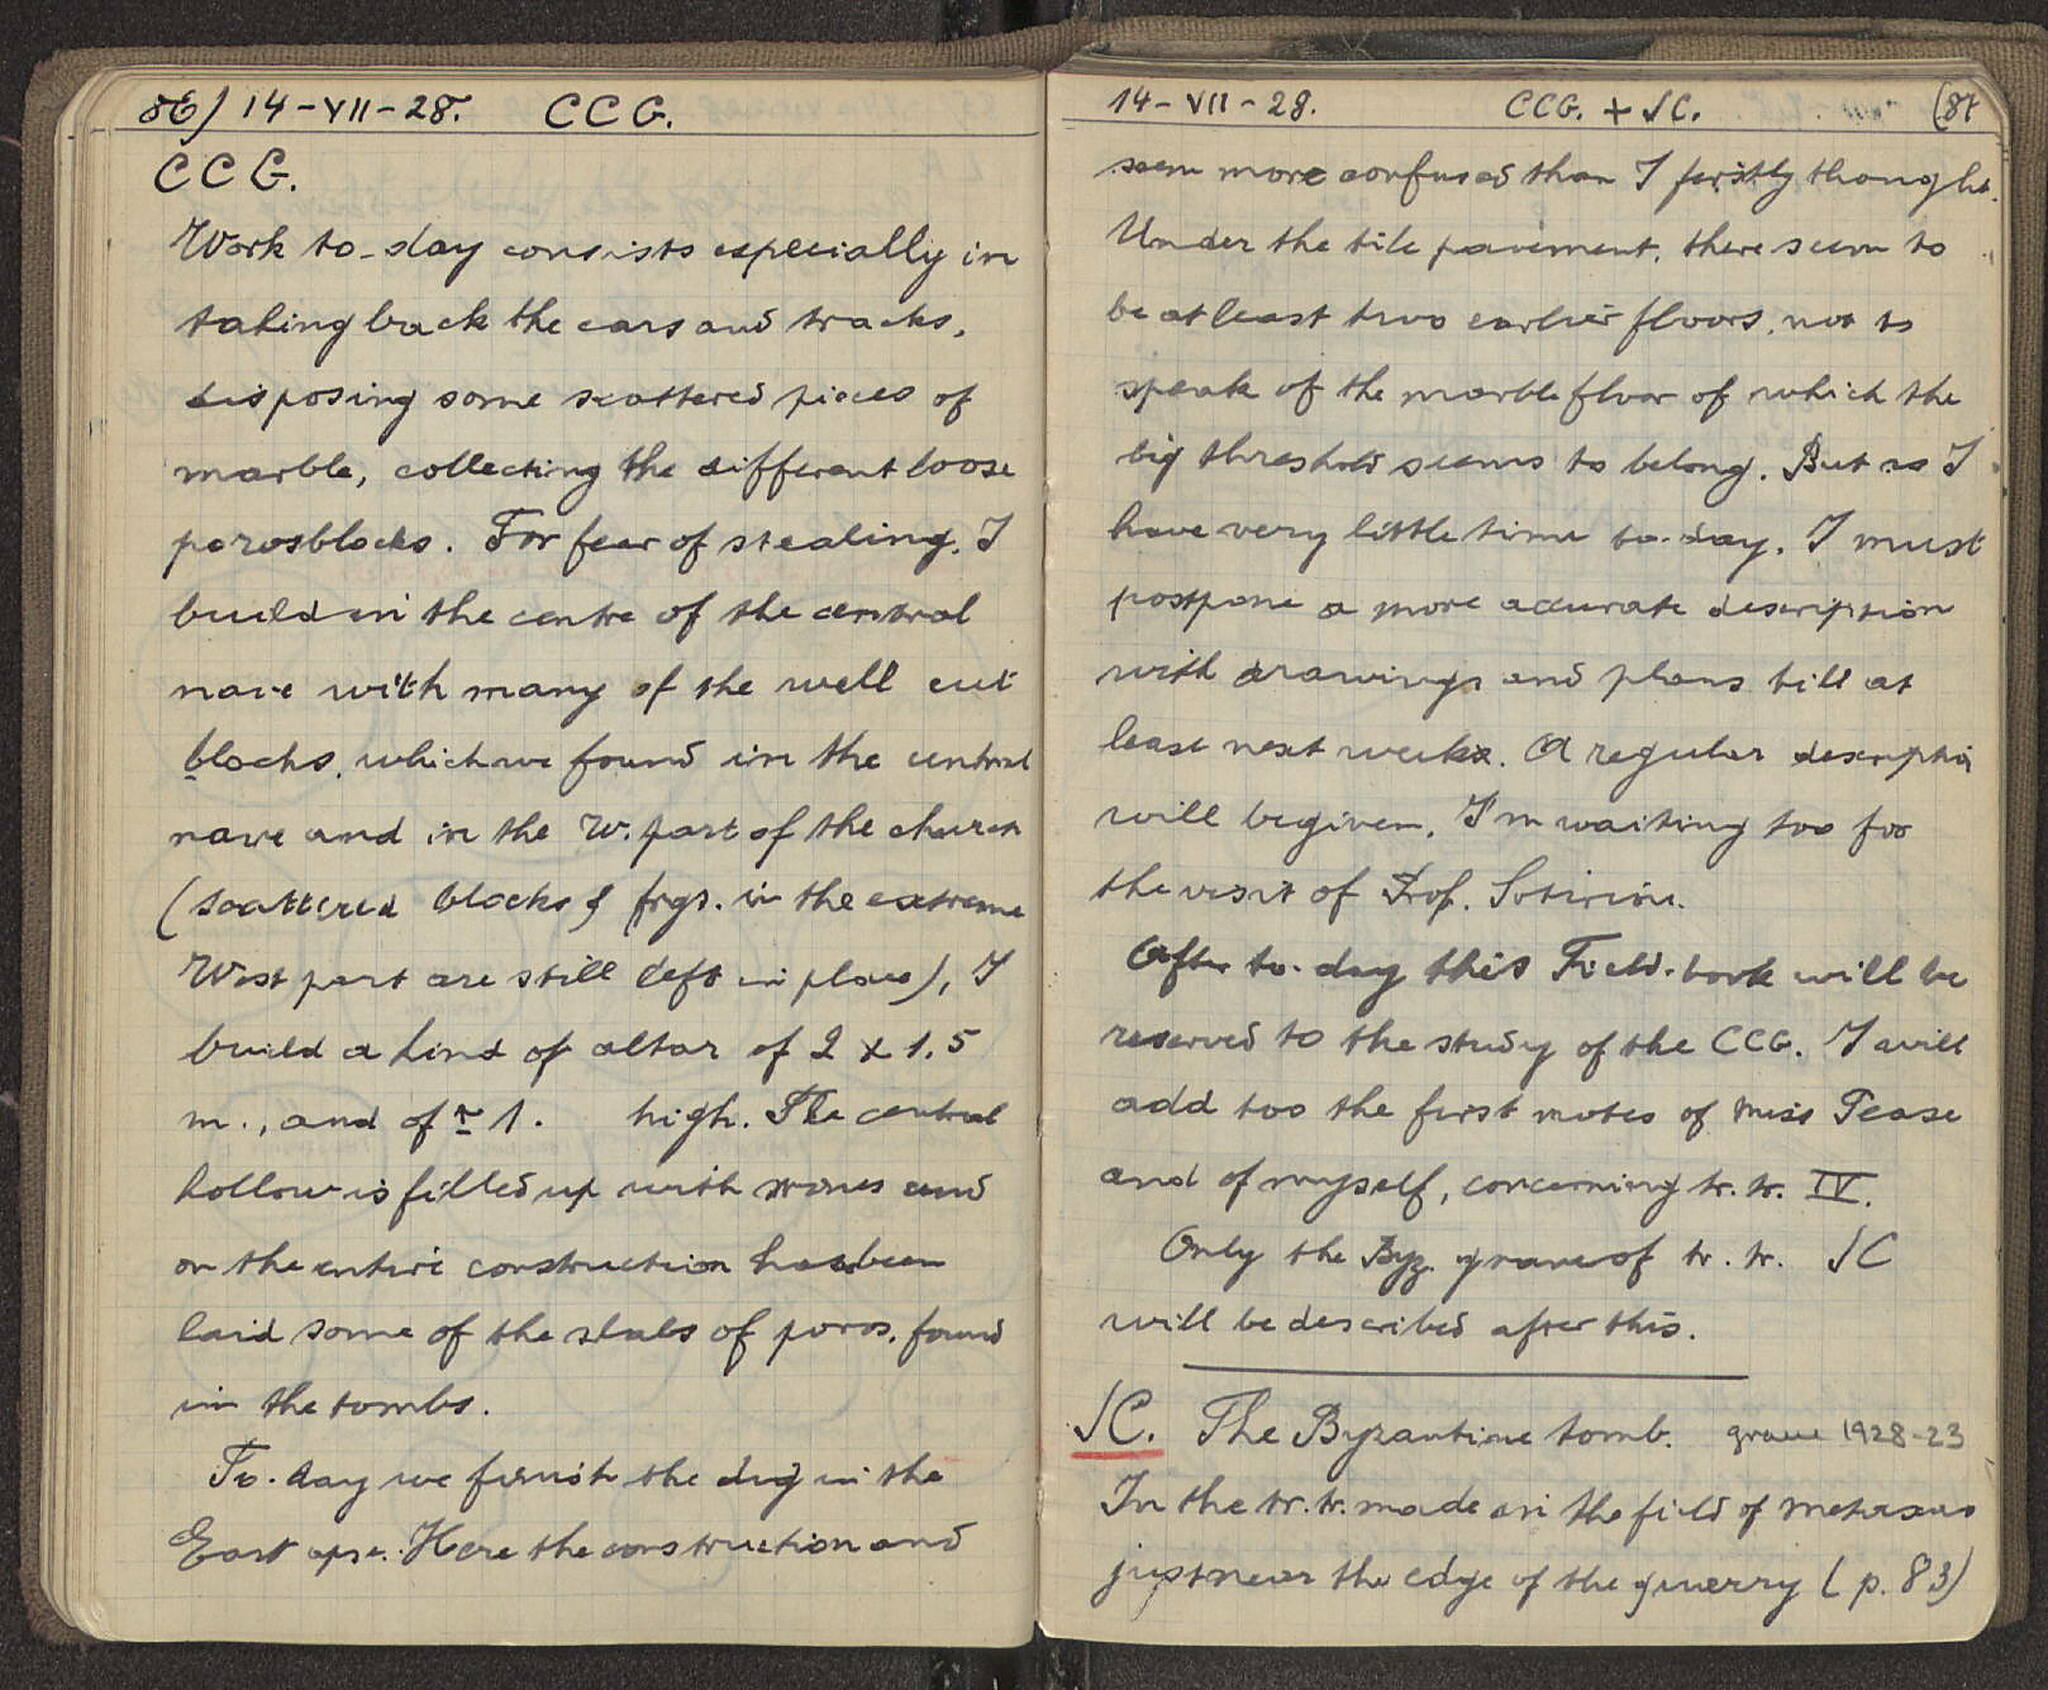 86) 14-VII-28. CCG.
CCG.
Work to-day consists especially in
taking back the cars and tracks,
disposing some scattered pieces of
marble, collecting the different loose
porosblocks. For fear of stealing, I
build in the centre of the central
nave with many of the well cut
blocks, which we found in the central
nave and in the W. part of the church
(scattered blocks & frgs. in the extreme
West part are still left in place), I
build a kind of altar of 2 x 1.5
m., and of ± 1. high. The central
hollow is filled up with stones and
on the entire construction has been
laid some of the slabs of poros, found
in the tombs.
To-day we finish the dig in the
East apse. Here the construction and
14-VII-28. CCG. + √C. (87
seem more confused than I firstly thought.
Under the tile pavement, there seem to
be at least two earlier floors, not to
speak of the marble floor of which the
big threshold seems to belong. But as I
have very little time to-day, I must
postpone a more accurate description
with drawings and plans till at
least next week. A regular description
will be given. I'm waiting too for
the visit of Prof. Sotiriou.
After to-day this Field-book will be
reserved to the study of the CCG. I will
add too the first notes of Miss Pease
and of myself, concerning tr. tr. IV.
Only the Byz. grave of tr. tr. √C
will be described after this.
√C. The Byzantine tomb. grave 1928-23
In the tr. tr. made in the field of Metaxas
just near the edge of the querry (p. 83)